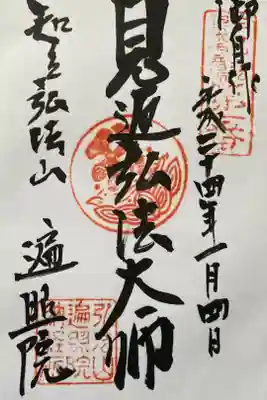 平成二十四年一月四日
見返弘法大師
知立弘法山 遍照院
弘法山
遍照院